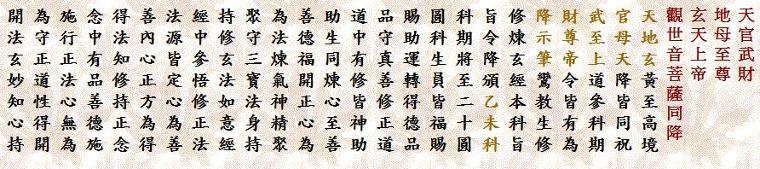 天官武財
地母至尊
玄天上帝
觀世音菩薩同降
天地玄黃至高境
官母天降皆同祝
武至上道參科期
財尊帝令皆有為
降示筆鸞教生修
修煉玄經本科旨
旨令降頒乙未科
科期將至二十圓
圓科生員皆福賜
賜助運轉得德品
品守真善修正道
道中守修皆神助
助生同煉心至善
善德福開正心為
為法煉氣神精聚
聚守三寶法身持
持修玄法如意經
經中參悟修正法
法源皆定心為善
善內心正方為得
得法知修持正念
念中有品善德施
施行正法心無為
為守正道性得開
開法玄妙知心持